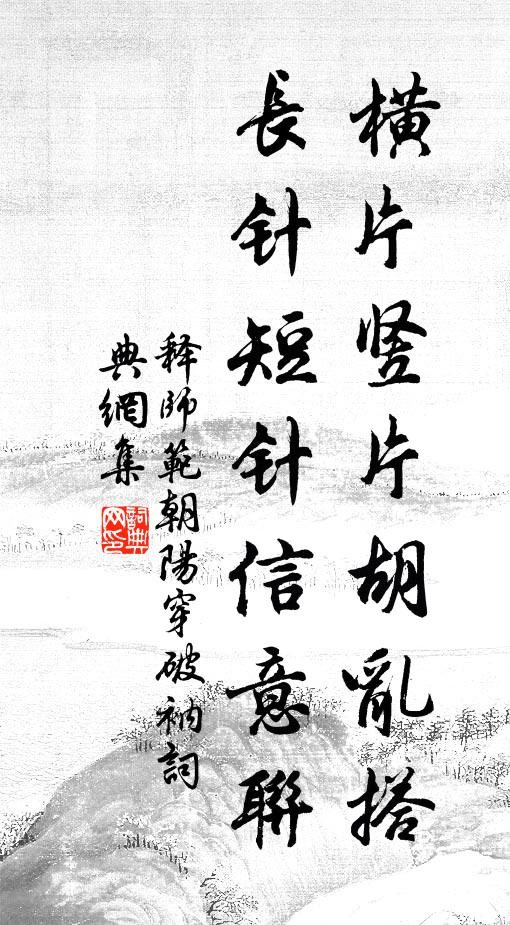 橫片竖片胡亂搭
長针短针信意聯
释師範朝陽穿破衲詞
典網集
詞典网印